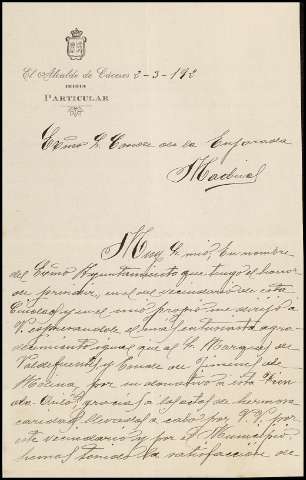 El Alcalde de Cáceres 2-3-192
PARTICULAR
Excmo S. Conde de la Enjarada
Madrid
Muy S. mio: En nombre
del Excmo Ayuntamiento que tengo el honor
de presidir, en el del vecindario de esta
Ciudad y en el mio propio me dirijo á
V. expresandole el mas entusiasta agra-
decimiento igual que al S. Marques de
Valdefuentes y Conde de
Molina, por su donativo á esta Tien
da-Asilo, gracias á los actos de hermosa
caridad llevados á cabo por V.V. por
este vecindario y por el Municipio
hemos tenido la satisfacción de